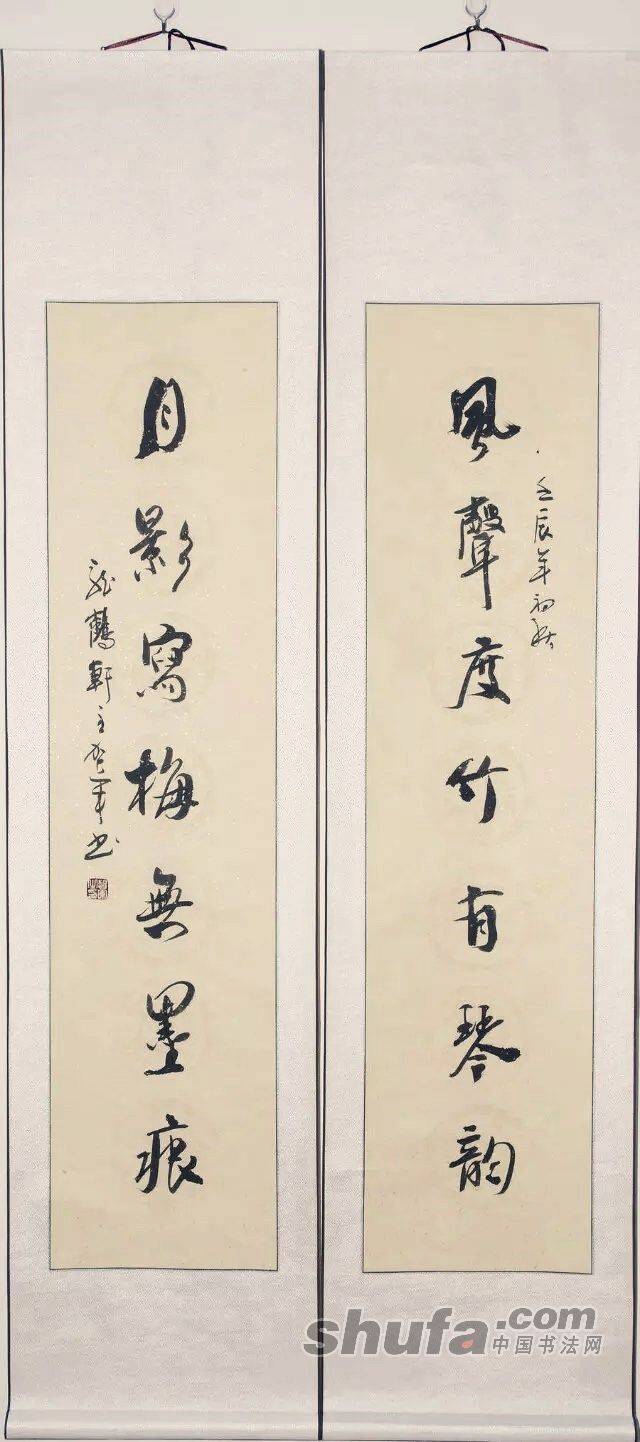 壬辰年初秋
風聲度竹有琴韵
月影寫梅無墨痕
龍鶴軒主
shufa.com
中国书法网